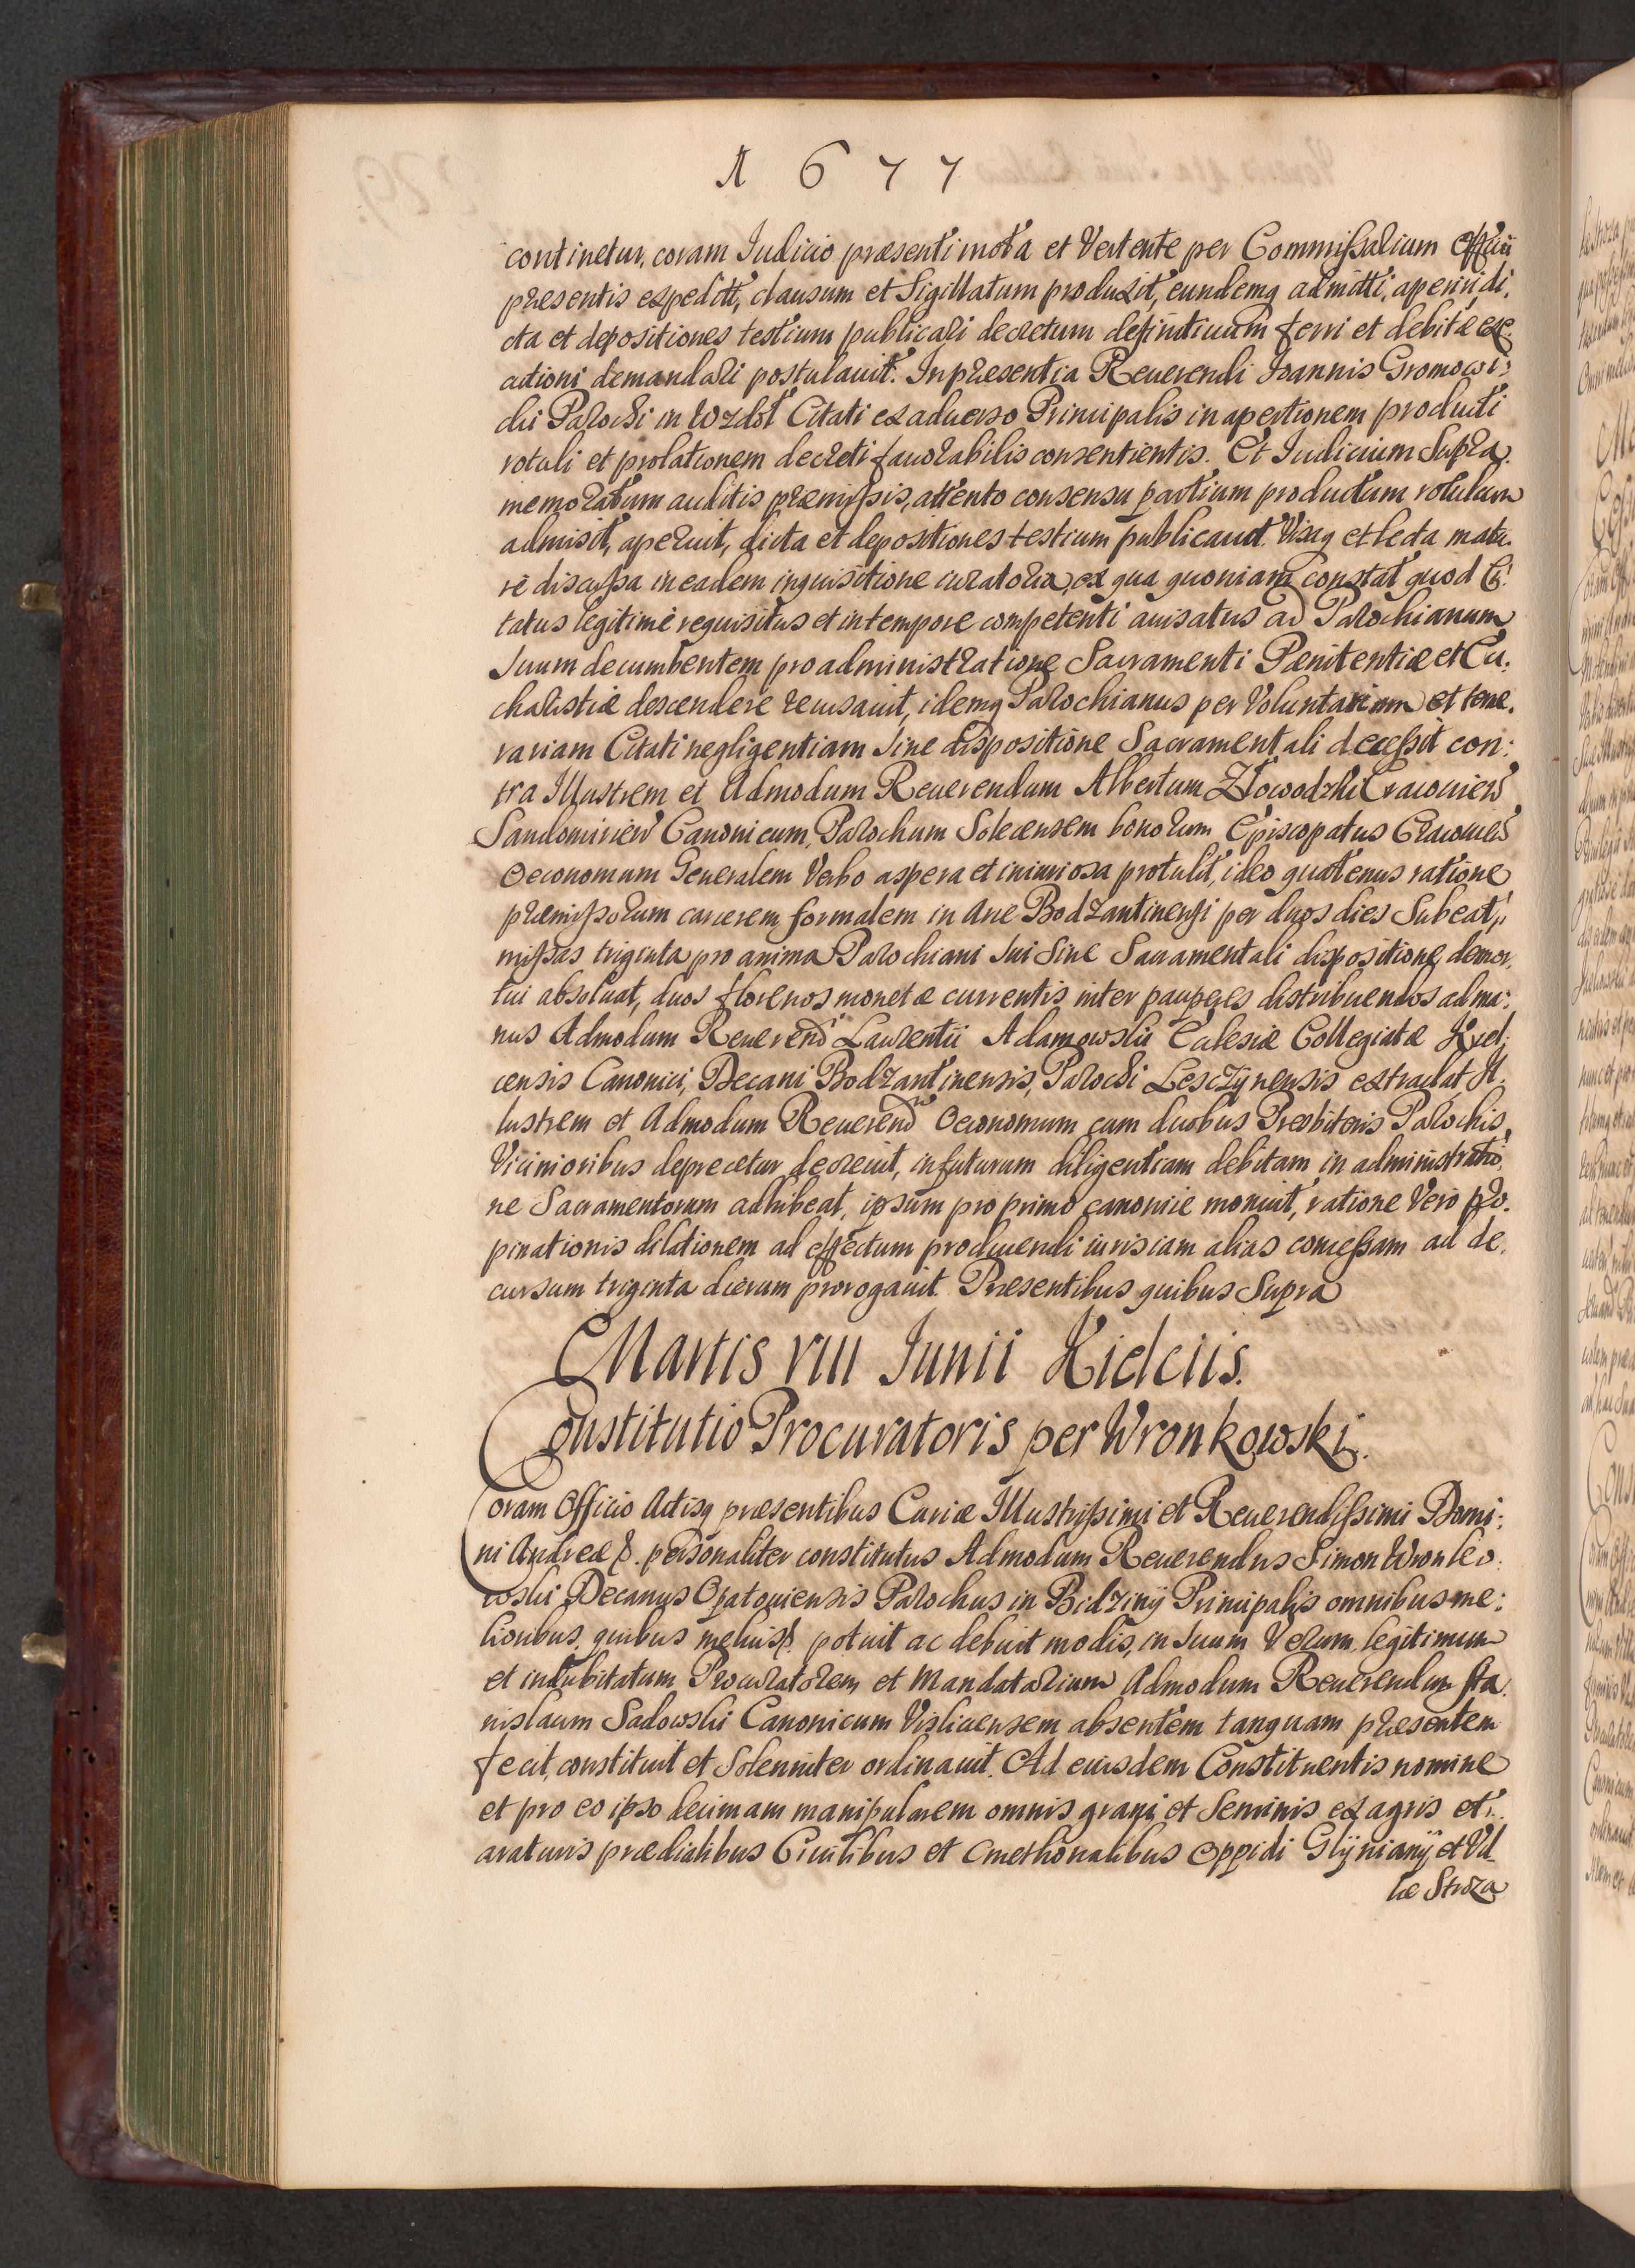 A 6 7 7
continetur, coram Iudicio præsenti mota et Vertente per Commissarium Officii
præsentis expediti, clausum et Sigillatum produxit, eundemq admitti, aperiri, di:
cta et depositiones testium publicari decretum definitiuum ferri et debitæ exe:
cutioni demandari postulauit. In præsentia Reuerendi Ioannis Gromowi:
chi Parochi in Wzdol Citati ex aduerso Principalis in apertionem producti
rotuli et prolationem decreti fauorabilis consentientis. Et Iudicium Supra:
memoratum auditis præmissis, attento consensu partium productum rotulum
admisit, aperuit, dicta et depositiones testium publicauit. Visaq et lecta matu:
rè discussa in eadem inquisitione iuratoria, ex qua quoniam constat quod Ci:
tatus legitimè requisitus et in tempore competenti auisatus ad Parochianum
suum decumbentem pro administratione Sacramenti Pænitentiæ et Eu:
charistiæ descendere recusauit, idemq Parochianus per Voluntariam et teme:
rariam Citati negligentiam sine dispositione Sacramentali decessit con:
tra Illustrem et Admodum Reuerendum Albertum Złowodzki Cracouien
Sandomirien Canonicum, Parochum Solecensem bonorum Episcopatus Cracouien
Oeconomum Generalem Verbo aspera et iniuriosa protulit, ideo quatenus ratione
præmissorum carcerem formalem in Arce Bodzantinensi per duos dies Subeat,
missas triginta pro anima Parochiani sui sine Sacramentali dispositione demor:
tui absoluat, duos florenos monetæ currentis inter pauperes distribuendos ad ma:
nus Admodum Reuerend Laurentii Adamowski Eclesiæ Collegiatæ Kiel:
censis Canonici, Decani Bodzantinensis, Parochi Lesczynensis extradat, Il:
lustrem et Admodum Reuerend Oeconomum cum duobus Presbiteris Parochis
Vicinioribus deprecetur, decreuit, in futurum diligentiam debitam in administratio:
ne Sacramentorum adhibeat, ipsum pro primo canonicè monuit, ratione Verò pro:
pinationis dilationem ad effectum producendi iuris iam alias concessam ad de:
cursum triginta dierum prorogauit. Præsentibus quibus Supra
Martis VIII Iunii Kielciis.
Constitutio Procuratoris per Wronkowski.
Coram Officio Actisq præsentibus Curiæ Illustrissimi et Reuerendissimi Domi:
ni Andreæ &. personaliter constitutus Admodum Reuerendus Simon Wronko:
wski Decanus Opatouiensis Parochus in Bidziny Principalis omnibus me:
lioribus, quibus melius &. potuit ac debuit modis, in suum Verum, legitimum
et indubitatum Procuratorem et Mandatarium Admodum Reuerendum Sta:
nislaum Sadowski Canonicum Visliciensem absentem tanquam præsentem
fecit, constituit et Solenniter ordinauit. Ad eiusdem Constituentis nomine
et pro eo ipso decimam manipularem omnis grani et Seminis ex agris et
araturis prædialibus Ciuilibus et Cmethonalibus Oppidi Glÿnianÿ et Vil
læ Stroza